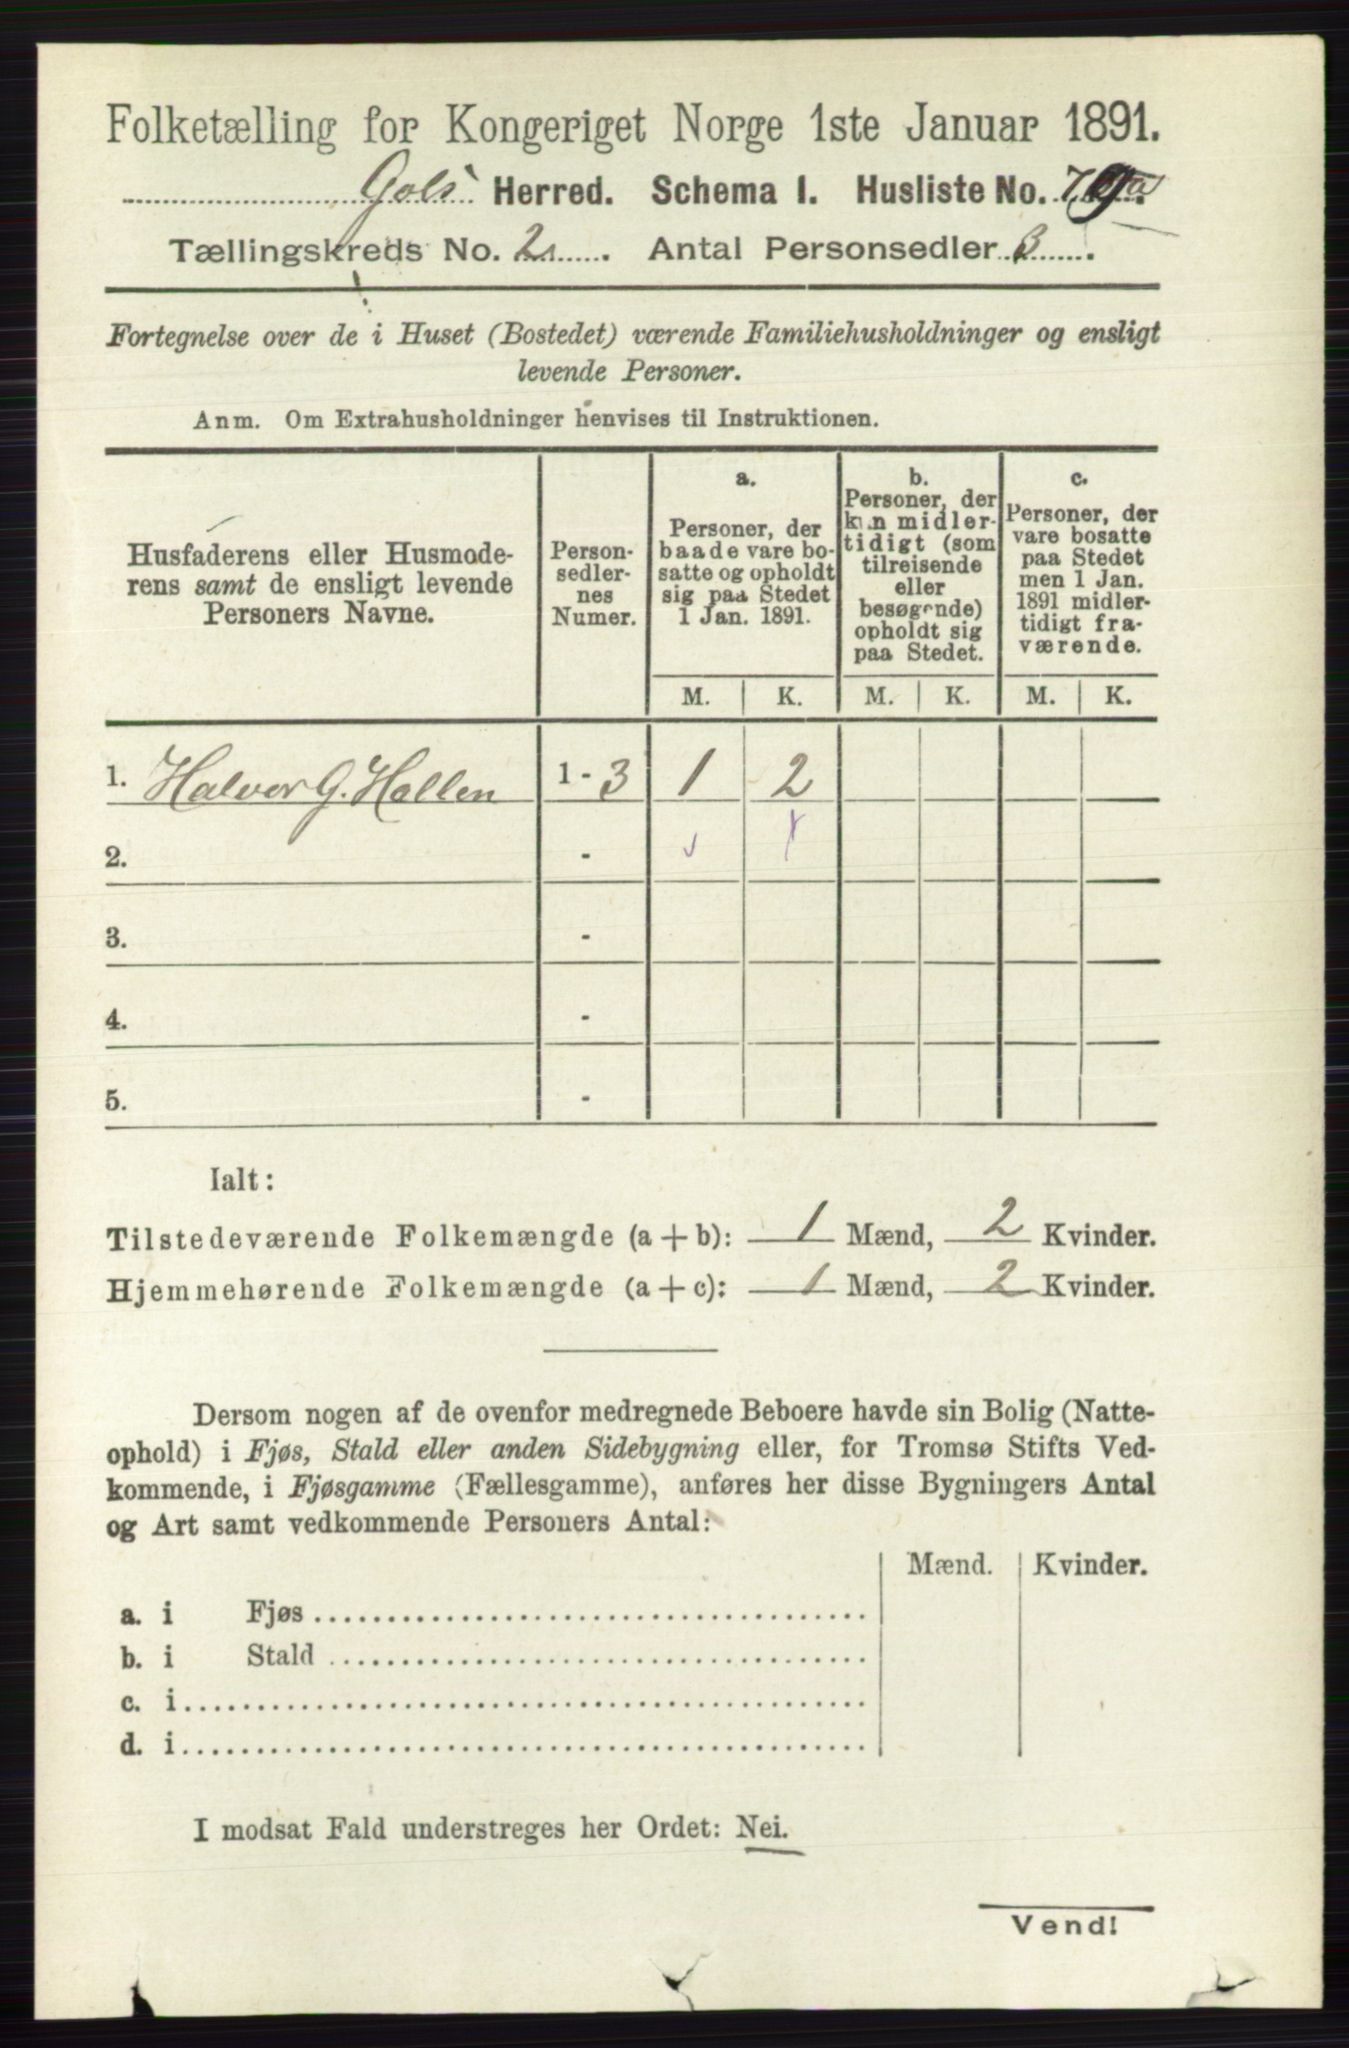 Folketælling for Kongeriget Norge 1ste Januar 1891.
Gols Herred. Schema 1. Husliste No.
Tællingskreds No. 2. Antal Personsedler 3.
Fortegnelse over de i Huset (Bostedet) værende Familiehusholdninger og ensligt
levende Personer.
Anm. Om Extrahusholdninger henvises til Instruktionen.
Husfaderens eller Husmode-
rens samt de ensligt levende
Personers Navne.
Person-
sedler-
nes
Numer.
a.
Personer, der
baade vare bo-
satte og opholdt
sig paa Stedet
1 Jan. 1891.
b.
Personer, der
kun midler-
tidigt (som
tilreisende
eller
besøgende)
opholdt sig
paa Stedet.
c.
Personer, der
vare bosatte
paa Stedet
men 1 Jan.
1891 midler-
tidigt fra-
værende.
M. K. M. K. M. K.
1. Halvor G. Hallen 1 - 3 1 2
2. -
3. -
4. -
5. -
Ialt:
Tilstedeværende Folkemængde (a + b): 1 Mænd, 2 Kvinder.
Hjemmehørende Folkemængde (a + c): 1 Mænd, 2 Kvinder.
Dersom nogen af de ovenfor medregnede Beboere havde sin Bolig (Natte-
ophold) i Fjøs, Stald eller anden Sidebygning eller, for Tromsø Stifts Ved-
kommende, i Fjøsgamme (Fællesgamme), anføres her disse Bygningers Antal
og Art samt vedkommende Personers Antal:
Mænd. Kvinder.
a. i Fjøs
b. i Stald
c. i
d. i
I modsat Fald understreges her Ordet: Nei.
Vend!